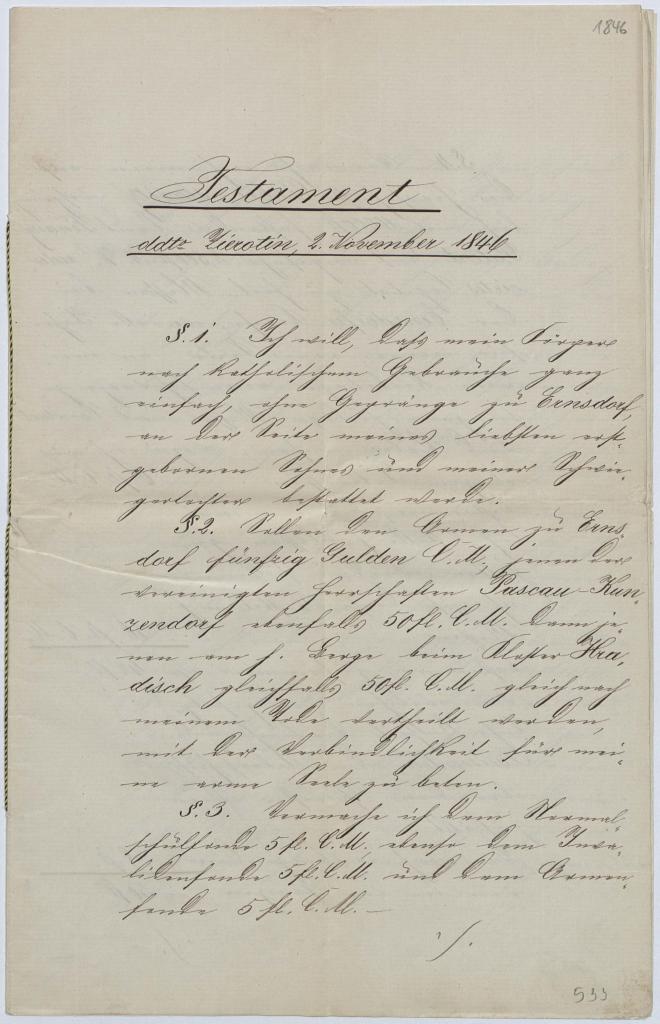 1846
Testament
ddto Zierotin, 2. November 1846
§. 1. Ich will, daß mein Körper
nach katholischem Gebrauche ganz
einfach, ohne Gepränge zu Ernsdorf,
an der Seite meines liebsten erst-
gebornen Sohnes und meiner Schwie-
gertochter bestattet werde.
§. 2. Sollen den Armen zu Erns-
dorf fünfzig Gulden C. M., jenen der
vereinigten Herrschaften Pascau-Kun-
zendorf ebenfalls 50 fl. C. M. dann je-
nen am h. Berge beim Kloster Hra-
disch gleichfalls 50 fl. C. M. gleich nach
meinem Tode vertheilt werden,
mit der Verbindlichkeit für mei-
ne arme Seele zu beten.
§. 3. Vermache ich dem Normal-
schulfonde 5 fl. C. M., ebenso dem Inva-
lidenfonde 5 fl. C. M. und dem Armen-
fonde 5 fl. C. M. —
./.
533